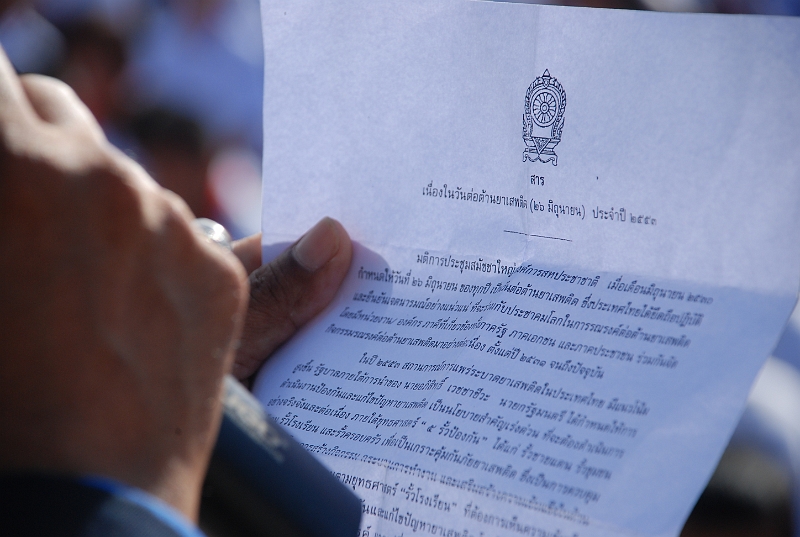 สาร
เนื่องในวันต่อต้านยาเสพติด (๒๖ มิถุนายน) ประจำปี ๒๕๕๓
มติการประชุมสมัชชาใหญ่องค์การสหประชาชาติ เมื่อเดือนมิถุนายน ๒๕๓๐
กำหนดให้วันที่ ๒๖ มิถุนายน ของทุกปี เป็นวันต่อต้านยาเสพติด ซึ่งประเทศไทยได้ยึดถือปฏิบัติ
และยืนยันเจตนารมณ์อย่างแน่วแน่ ที่จะร่วมกับประชาคมโลกในการรณรงค์ต่อต้านยาเสพติด
โดยมีหน่วยงาน/ องค์กร ภาคีที่เกี่ยวข้องทั้งภาครัฐ ภาคเอกชน และภาคประชาชน ร่วมกันจัด
กิจกรรมรณรงค์ต่อต้านยาเสพติดมาอย่างต่อเนื่อง ตั้งแต่ปี ๒๕๓๑ จนถึงปัจจุบัน
ในปี ๒๕๕๓ สถานการณ์การแพร่ระบาดยาเสพติดในประเทศไทย มีแนวโน้ม
สูงขึ้น รัฐบาลภายใต้การนำของ นายอภิสิทธิ์ เวชชาชีวะ นายกรัฐมนตรี ได้กำหนดให้การ
ดำเนินงานป้องกันและแก้ไขปัญหายาเสพติด เป็นนโยบายสำคัญเร่งด่วน ที่จะต้องดำเนินการ
อย่างจริงจังและต่อเนื่อง ภายใต้ยุทธศาสตร์ "๕ รั้วป้องกัน" ได้แก่ รั้วชายแดน รั้วชุมชน
รั้วโรงเรียน และรั้วครอบครัว เพื่อเป็นเกราะคุ้มกันภัยยาเสพติด ซึ่งเป็นการควบคุม
การสร้างกิจกรรม กระบวนการทำงาน และเสริมสร้างความ
ตามยุทธศาสตร์ "รั้วโรงเรียน" ที่ต้องการเห็นความ
และแก้ไขปัญหายาเสพติด